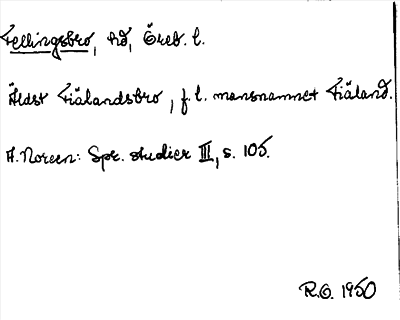 Fellingsbro, hd, Öreb. l.
Äldst Fiälandsbro, f. l. mansnamnet Fiäland.
A. Noreen: Spr. studier III, s. 105.
R.O. 1950